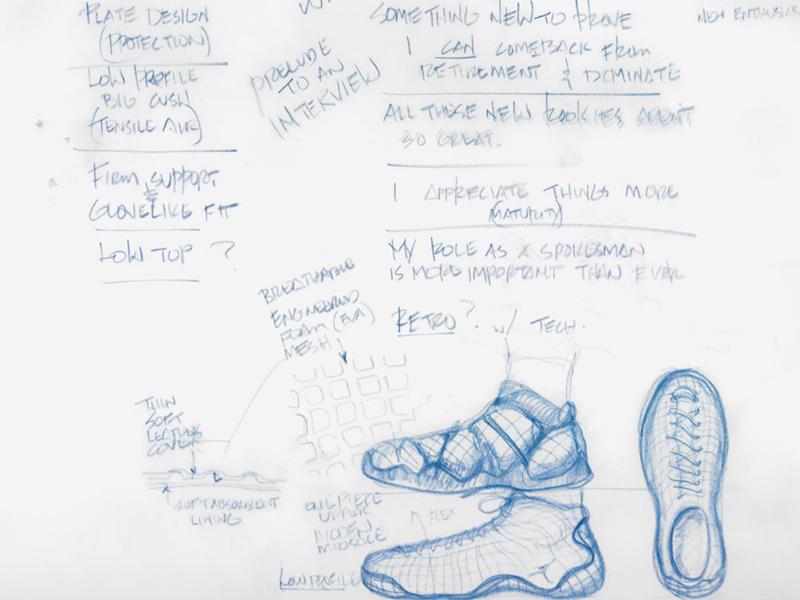 PLATE DESIGN
(PROTECTION)
LOW PROFILE
BIG CUSH
(TENSILE AIR)
FIRM SUPPORT
&
GLOVELIKE FIT
LOW TOP ?
PRELUDE
TO AN
INTERVIEW
SOMETHING NEW TO PROVE
I CAN COMEBACK FROM
RETIREMENT & DOMINATE
ALL THESE NEW ROOKIES AREN'T
SO GREAT.
I APPRECIATE THINGS MORE
(MATURITY)
MY ROLE AS A SPOKESMAN
IS MORE IMPORTANT THAN EVER
RETRO? W/ TECH.
BREATHABLE
ENGINEERED
FOAM (EVA)
MESH!
THIN
SOFT
LEATHER
COVER
SOFT ABSORBENT
LINING
ONE PIECE
UPPER
HIDDEN
MIDSOLE
FLEX
LOW PROFILE